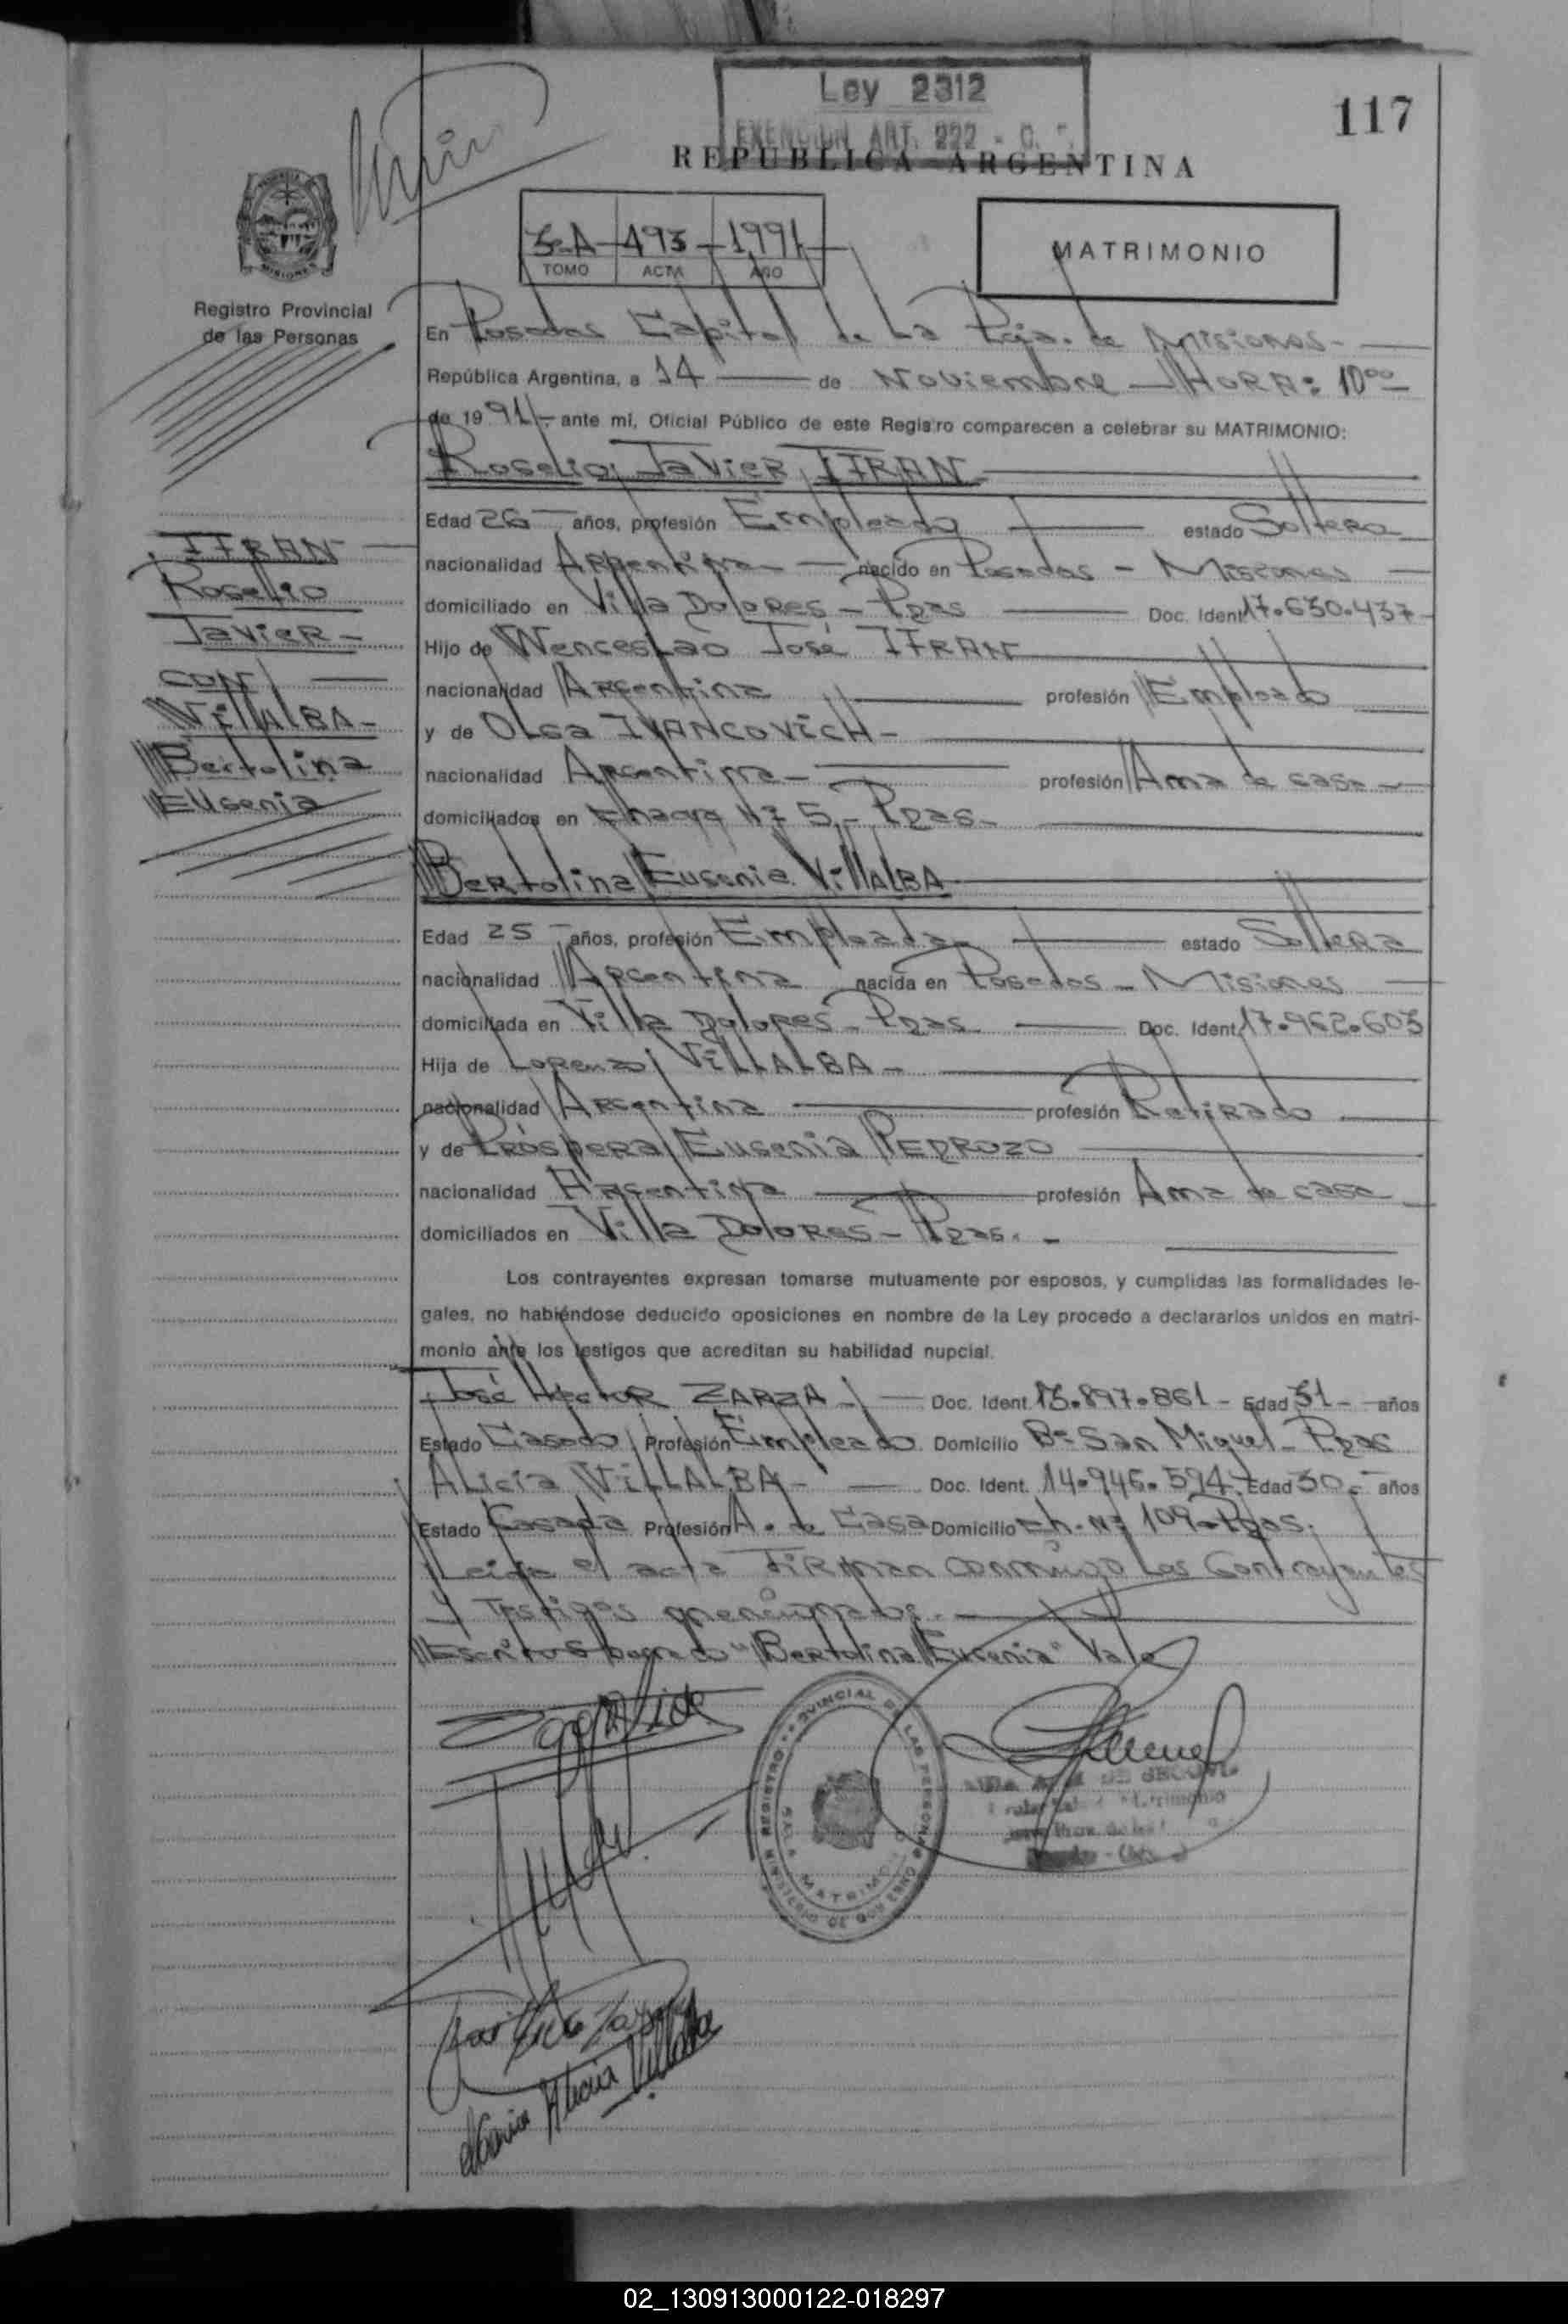 Ley 2312
EXENCION ART. 222 - C. F.
117
REPUBLICA ARGENTINA
3-A - 493 - 1991
TOMO ACTA AÑO
MATRIMONIO
Registro Provincial
de las Personas
En Posadas Capital de La Pcia. de Misiones.-
República Argentina, a 14 de Noviembre - HORA: 10ºº-
de 1991.- ante mí, Oficial Público de este Registro comparecen a celebrar su MATRIMONIO:
Rogelio Javier IFRAN
Edad 26 años, profesión Empleado estado Soltero
nacionalidad Argentina nacido en Posadas - Misiones
domiciliado en Villa Dolores - Pdas Doc. Ident. 17.630.437
Hijo de Wenceslao José IFRAN
nacionalidad Argentina profesión Empleado
y de Olga IVANCOVICH -
nacionalidad Argentina - profesión Ama de casa -
domiciliados en Chacra Nº 5 - Pdas-
Bertolina Eugenia VillALBA
Edad 25 años, profesión Empleada estado Soltera
nacionalidad Argentina nacida en Posadas - Misiones
domiciliada en Villa Dolores - Pdas Doc. Ident. 17.962.603
Hija de Lorenzo VILLALBA -
nacionalidad Argentina profesión Retirado
y de Próspera Eugenia PEDROZO
nacionalidad Argentina profesión Ama de casa
domiciliados en Villa Dolores - Pdas. -
Los contrayentes expresan tomarse mutuamente por esposos, y cumplidas las formalidades le-
gales, no habiéndose deducido oposiciones en nombre de la Ley procedo a declararlos unidos en matri-
monio ante los testigos que acreditan su habilidad nupcial.
José Héctor ZARZA - Doc. Ident. 13.897.861 - Edad 31 - años
Estado Casado Profesión Empleado Domicilio Bº San Miguel - Pdas
Alicia VILLALBA - Doc. Ident. 14.946.594 Edad 30 - años
Estado Casada Profesión A. de Casa Domicilio Ch. Nº 109 - Pdas.
Leida el acta firman conmigo los Contrayentes
y testigos mencionados.
Escrito S/borrado "Bertolina Eugenia" Vale
IFRAN
Rogelio
Javier -
CON
VillALBA -
Bertolina
Eugenia
REGISTRO PROVINCIAL DE LAS PERSONAS
MINISTERIO DE GOBIERNO
SALA MATRIMONIO
María Alicia Villalba
02_130913000122-018297